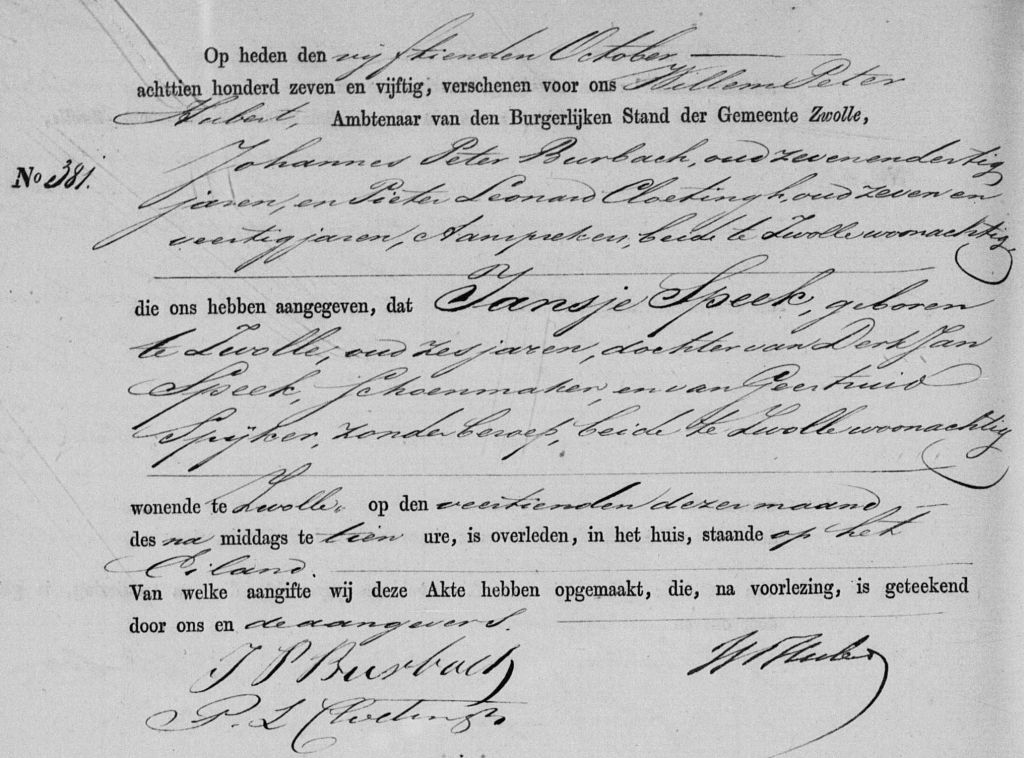 Op heden den vijftienden October
achttien honderd zeven en vijftig, verschenen voor ons Willem Peter
Hubert, Ambtenaar van den Burgerlijken Stand der Gemeente Zwolle,
Johannes Peter Burbach, oud zevenendertig
No 381.
jaren, en Pieter Leonard Cloetingh, oud zeven en
veertig jaren, Aansprekers, beide te Zwolle woonachtig
die ons hebben aangegeven, dat Jansje Speek, geboren
te Zwolle, oud zes jaren, dochter van Derk Jan
Speek, Schoenmaker, en van Geertruid
Spijker, zonder beroep, beide te Zwolle woonachtig
wonende te Zwolle, op den veertienden dezer maand
des na middags te tien ure, is overleden, in het huis, staande op het
Eiland.
Van welke aangifte wij deze Akte hebben opgemaakt, die, na voorlezing, is geteekend
door ons en de aangevers.
J P Burbach W P Hubert
P. L Cloetingh